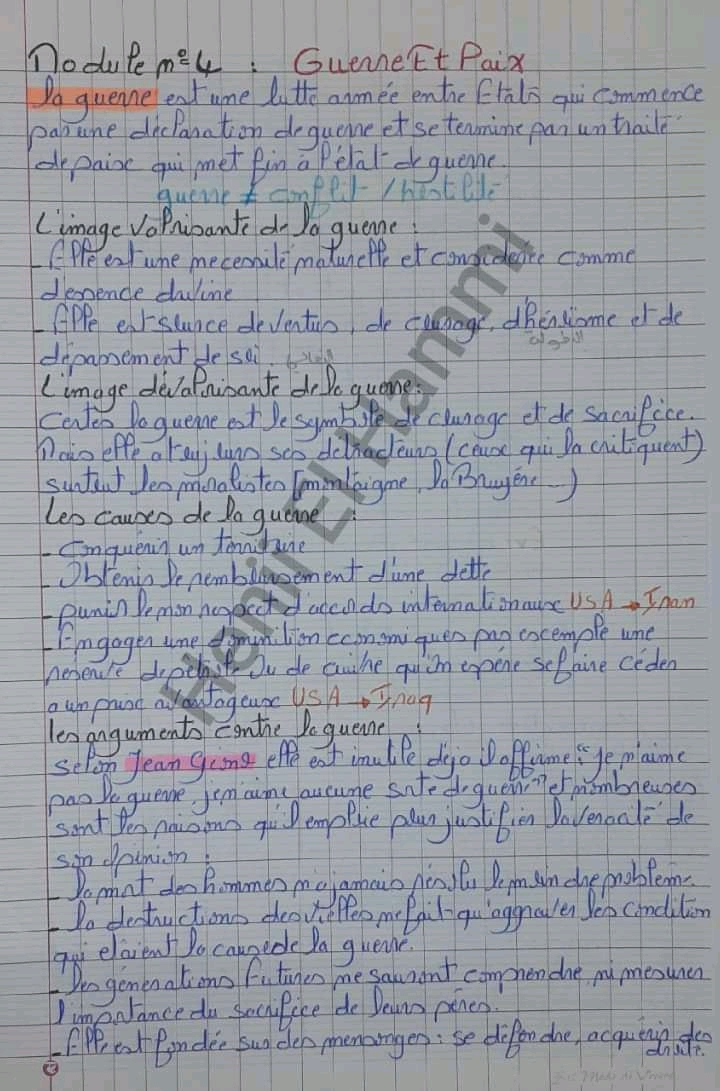 Module n°4 : Guerre Et Paix
la guerre est une lutte armée entre Etats qui commence
par une déclaration de guerre et se termine par un traité
de paix qui met fin à l'état de guerre.
guerre ≠ conflit / hostilité
L'image valorisante de la guerre :
- Elle est une necessité naturelle et considérée comme
d'essence divine
- Elle est source de vertus, de courage, d'héroïsme et de
البطولة
dépassement de soi
L'image dévalorisante de la guerre :
Certes la guerre est le symbole de courage et de sacrifice.
Mais elle a toujours ses détracteurs (ceux qui la critiquent)
surtout les moralistes (montaigne, la Bruyére...)
Les causes de la guerre :
- Conquérir un territoire
- Obtenir le remboursement d'une dette
- punir le non respect d'accords internationaux USA → Iran
- Engager une économiques par exemple une
réserve de pétrole ou de cuivre qu'on espére se faire céder
a un prix avantageux USA → Iraq
les arguments contre la guerre :
Selon Jean Giono elle est inutile déjà il affirme : "je n'aime
pas la guerre, je n'aime aucune sorte de guerre" et nombreuses
sont les raisons qu'il emploie pour justifier la veracité de
son opinion :
- la mort des hommes n'a jamais résolu le moindre problème
- la destructions des villes ne fait qu'aggraver les condition
qui étaient la cause de la guerre.
- Les générations futures ne sauront comprendre, ni mesurer
l'importance du sacrifice de leurs pères.
- Elle est fondée sur des mensonges : se défendre, acquérir des
droits.
Hanir El Hammi